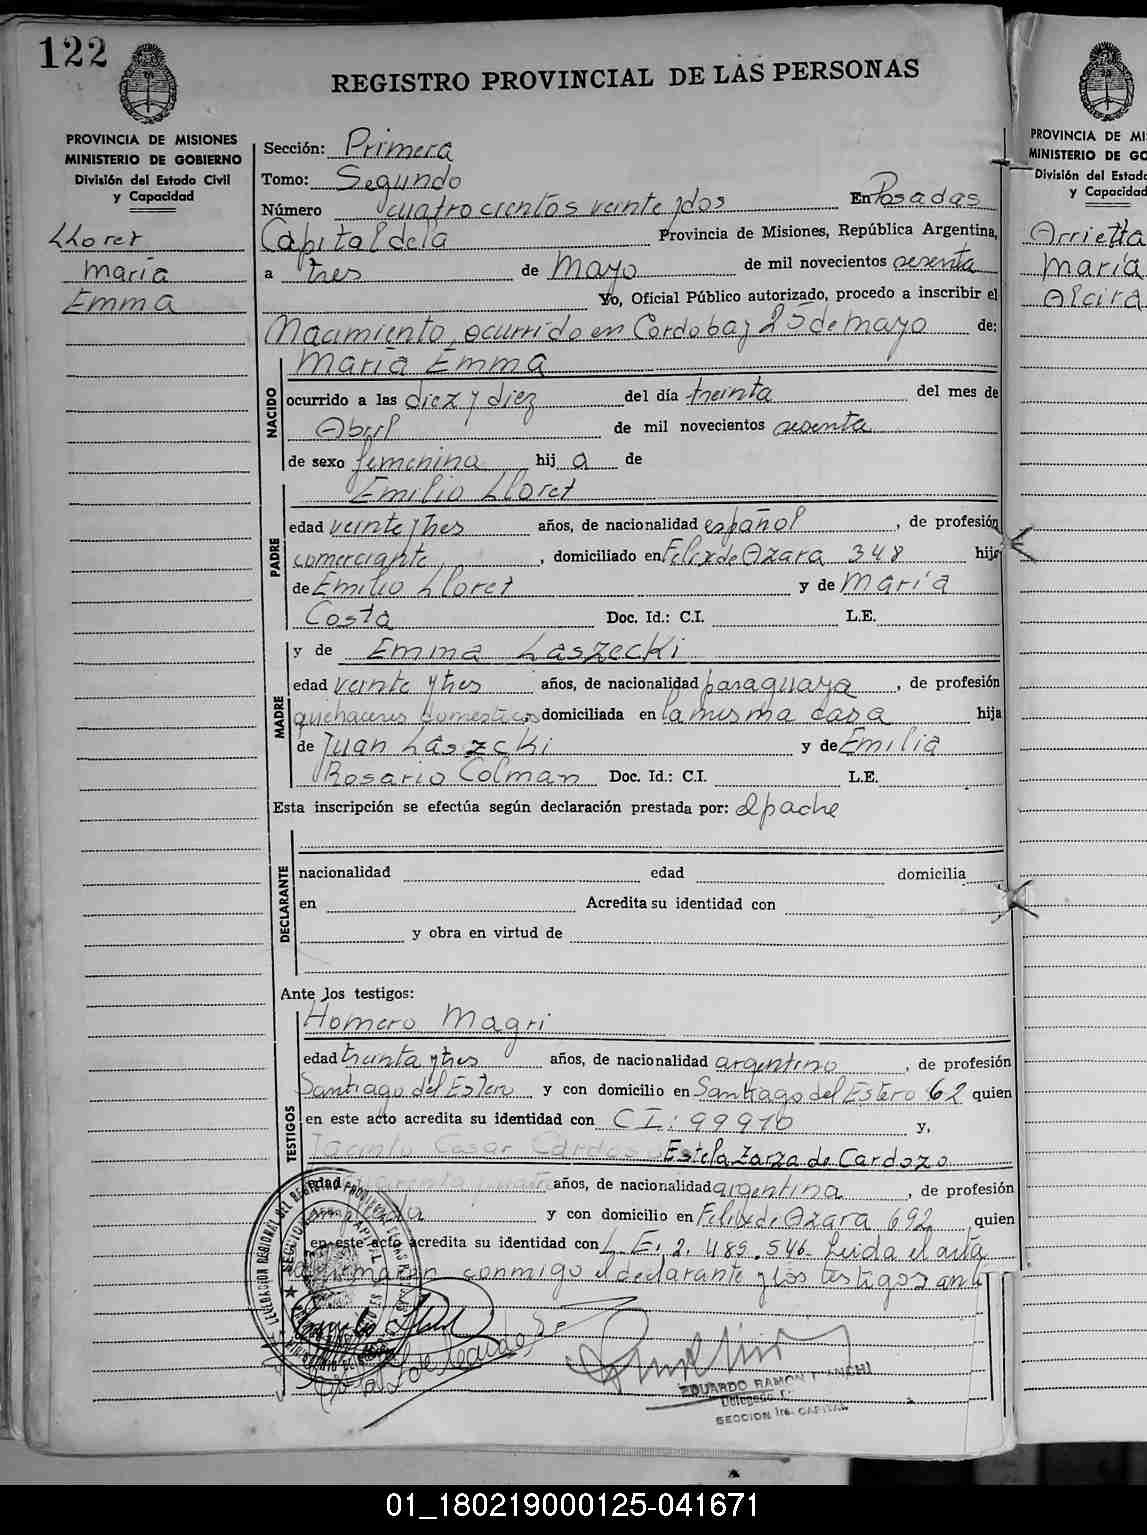 122
REGISTRO PROVINCIAL DE LAS PERSONAS
PROVINCIA DE MISIONES
MINISTERIO DE GOBIERNO
División del Estado Civil
y Capacidad
Lloret
María
Emma
Sección: Primera
Tomo: Segundo
Número cuatrocientos veinte y dos En Posadas
Capital de la Provincia de Misiones, República Argentina,
a tres de Mayo de mil novecientos sesenta
Yo, Oficial Público autorizado, procedo a inscribir el
Nacimiento, ocurrido en Córdoba y 25 de mayo de:
NACIDO
María Emma
ocurrido a las diez y diez del día treinta del mes de
Abril de mil novecientos sesenta
de sexo femenino hij a de
PADRE
Emilio Lloret
edad veinte y tres años, de nacionalidad español, de profesión
comerciante, domiciliado en Felix de Azara 348 hijo
de Emilio Lloret y de María
Costa Doc. Id.: C.I. L.E.
MADRE
y de Emma Laszecki
edad veinte y tres años, de nacionalidad paraguaya, de profesión
quehaceres domesticos domiciliada en la misma casa hija
de Juan Laszcki y de Emilia
Rosario Colman Doc. Id.: C.I. L.E.
Esta inscripción se efectúa según declaración prestada por: el padre
DECLARANTE
nacionalidad edad domicilia
en Acredita su identidad con
y obra en virtud de
Ante los testigos:
TESTIGOS
Homero Magri
edad treinta y tres años, de nacionalidad argentino, de profesión
Santiago del Estero y con domicilio en Santiago del Estero 62 quien
en este acto acredita su identidad con C I: 99910 y,
Jacinto Cesar Cardoso Estela Zarza de Cardozo
edad años, de nacionalidad argentina, de profesión
y con domicilio en Felix de Azara 692 quien
en este acto acredita su identidad con L. E. 2.489.546. Leida el acta
la firmaron conmigo el declarante y los testigos
EDUARDO RAMON
SECCION 1ra. CAPITAL
PROVINCIA DE MI
MINISTERIO DE GO
División del Estado
y Capacidad
Arrietta
María
Alcira
01_180219000125-041671